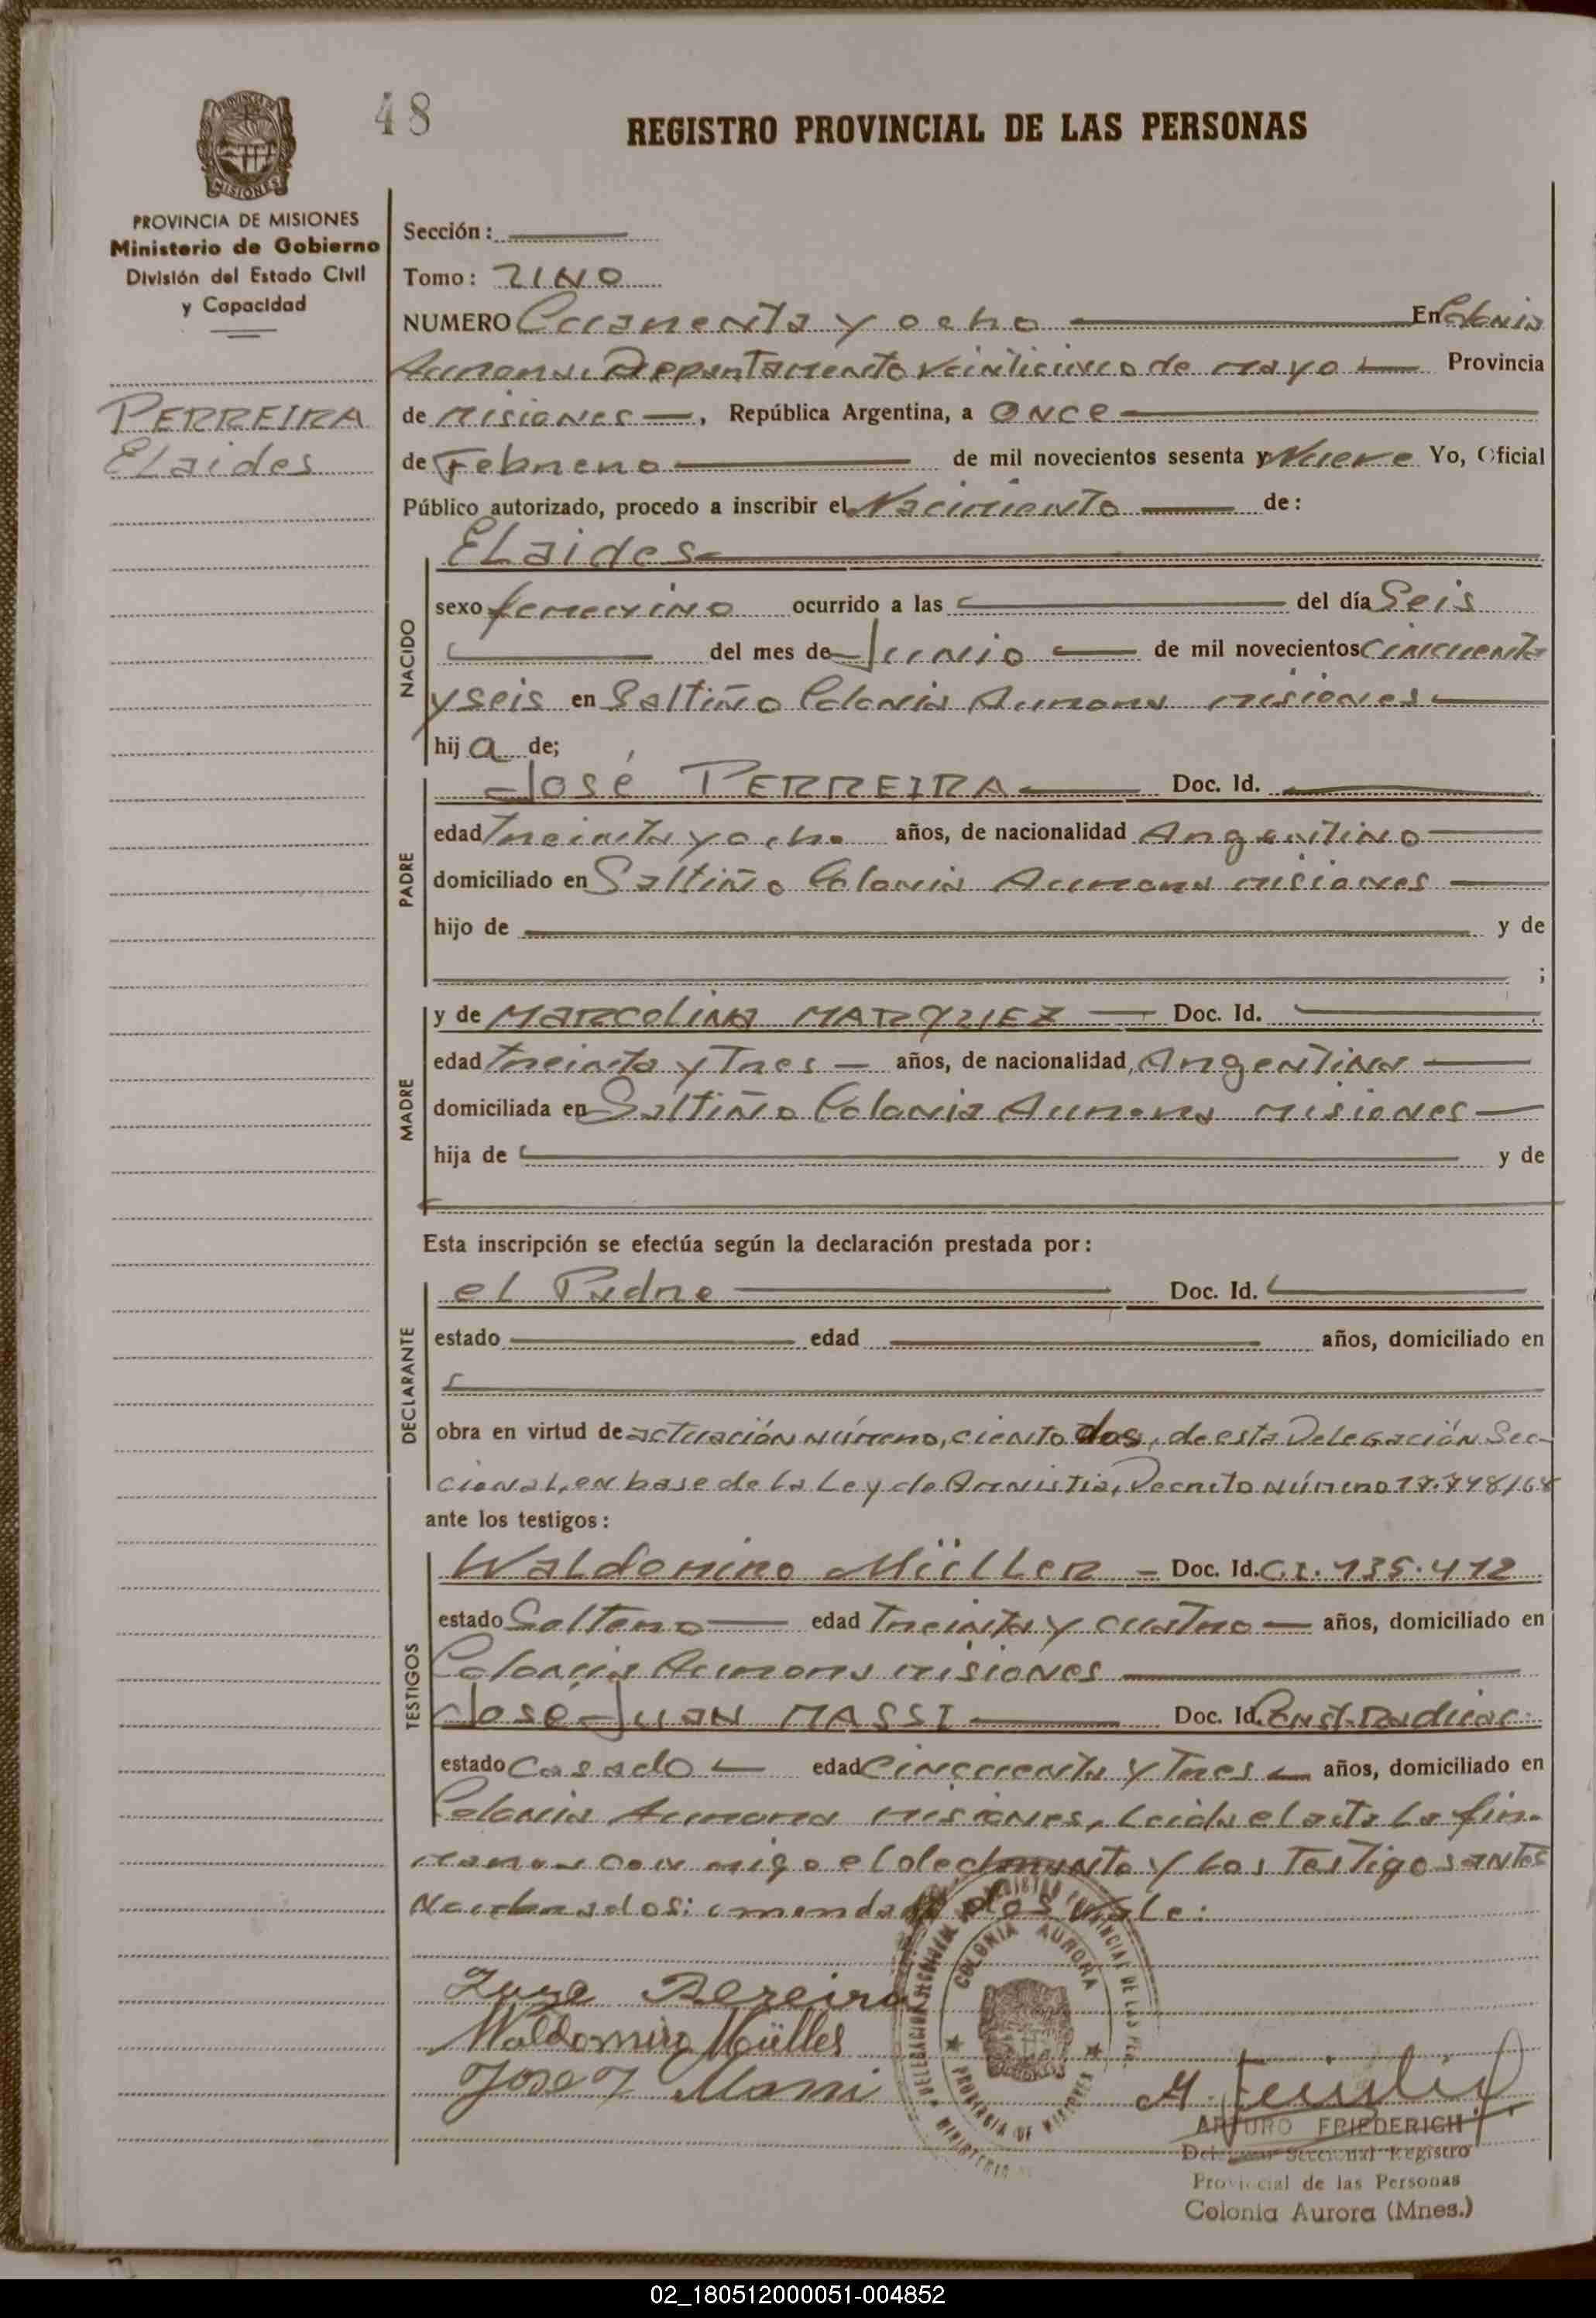 48
REGISTRO PROVINCIAL DE LAS PERSONAS
PROVINCIA DE
MISIONES
PROVINCIA DE MISIONES
Ministerio de Gobierno
División del Estado Civil
y Capacidad
PERREIRA
ELaides
Sección:
Tomo: UNO
NUMERO Cuarenta y ocho En Colonia
Aurora, Departamento Veinticinco de mayo Provincia
de Misiones, República Argentina, a ONCE
de Febrero de mil novecientos sesenta y Nueve Yo, Oficial
Público autorizado, procedo a inscribir el Nacimiento de:
NACIDO
ELaides
sexo femenino ocurrido a las del día Seis
del mes de Junio de mil novecientos Cincuenta
y seis en Saltiño Colonia Aurora misiones
hija de;
PADRE
José PERREIRA Doc. Id.
edad Treinta y ocho años, de nacionalidad Argentino
domiciliado en Saltiño Colonia Aurora misiones
hijo de y de
;
MADRE
y de Marcolina MARQUEZ Doc. Id.
edad treinta y Tres años, de nacionalidad, Argentina
domiciliada en Saltiño Colonia Aurora misiones
hija de y de
Esta inscripción se efectúa según la declaración prestada por:
DECLARANTE
el Padre Doc. Id.
estado edad años, domiciliado en
obra en virtud de actuación número, ciento dos, de esta Delegación Sec-
cional, en base de la Ley de Amnistia, Decreto número 17.748/68
ante los testigos:
TESTIGOS
Waldomiro Müller - Doc. Id. C.I. 135.412
estado Soltero edad Treinta y cuatro años, domiciliado en
Colonia Aurora misiones
José Juan MASSI Doc. Id. Const. Radicac.
estado Casado edad Cincuenta y Tres años, domiciliado en
Colonia Aurora misiones, Leida el acta la fir-
man con migo el declarante y los Testigos antes
Nombrados: enmendado dos vale:
Waldomiro Müller
Jose J Massi
COLONIA AURORA
PROVINCIA DE MISIONES
ARTURO FRIEDERICH
Delegado Seccional Registro
Provincial de las Personas
Colonia Aurora (Mnes.)
02_180512000051-004852